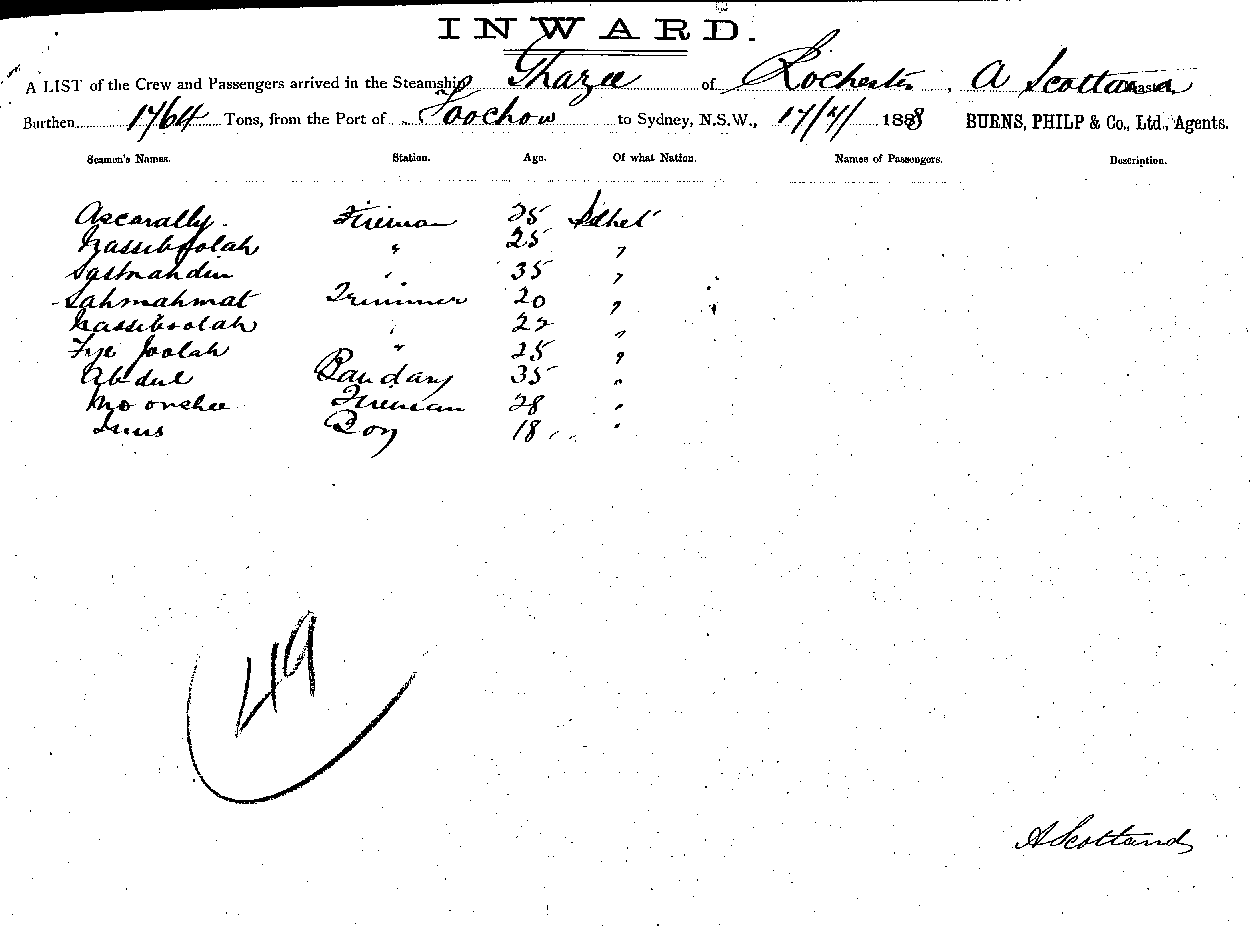 INWARD.
A LIST of the Crew and Passengers arrived in the Steamship Ghazee of Rochester, A Scotland Master
Burthen 1764 Tons, from the Port of Foochow to Sydney, N.S.W., 17/4/ 1888 BURNS, PHILP & Co., Ltd., Agents.
Seamen's Names. Station. Age. Of what Nation. Names of Passengers. Description.
Ascarally. Fireman 25 Sylhet
Nassiboolah " 25 "
35 "
Sahmahmat Trimmer 20 "
Nassiboolah " 22 "
Fyejoolah " 25 "
Abdul Bandary 35 "
Moonshee Fireman 28 "
Boy 18 "
49
A Scotland